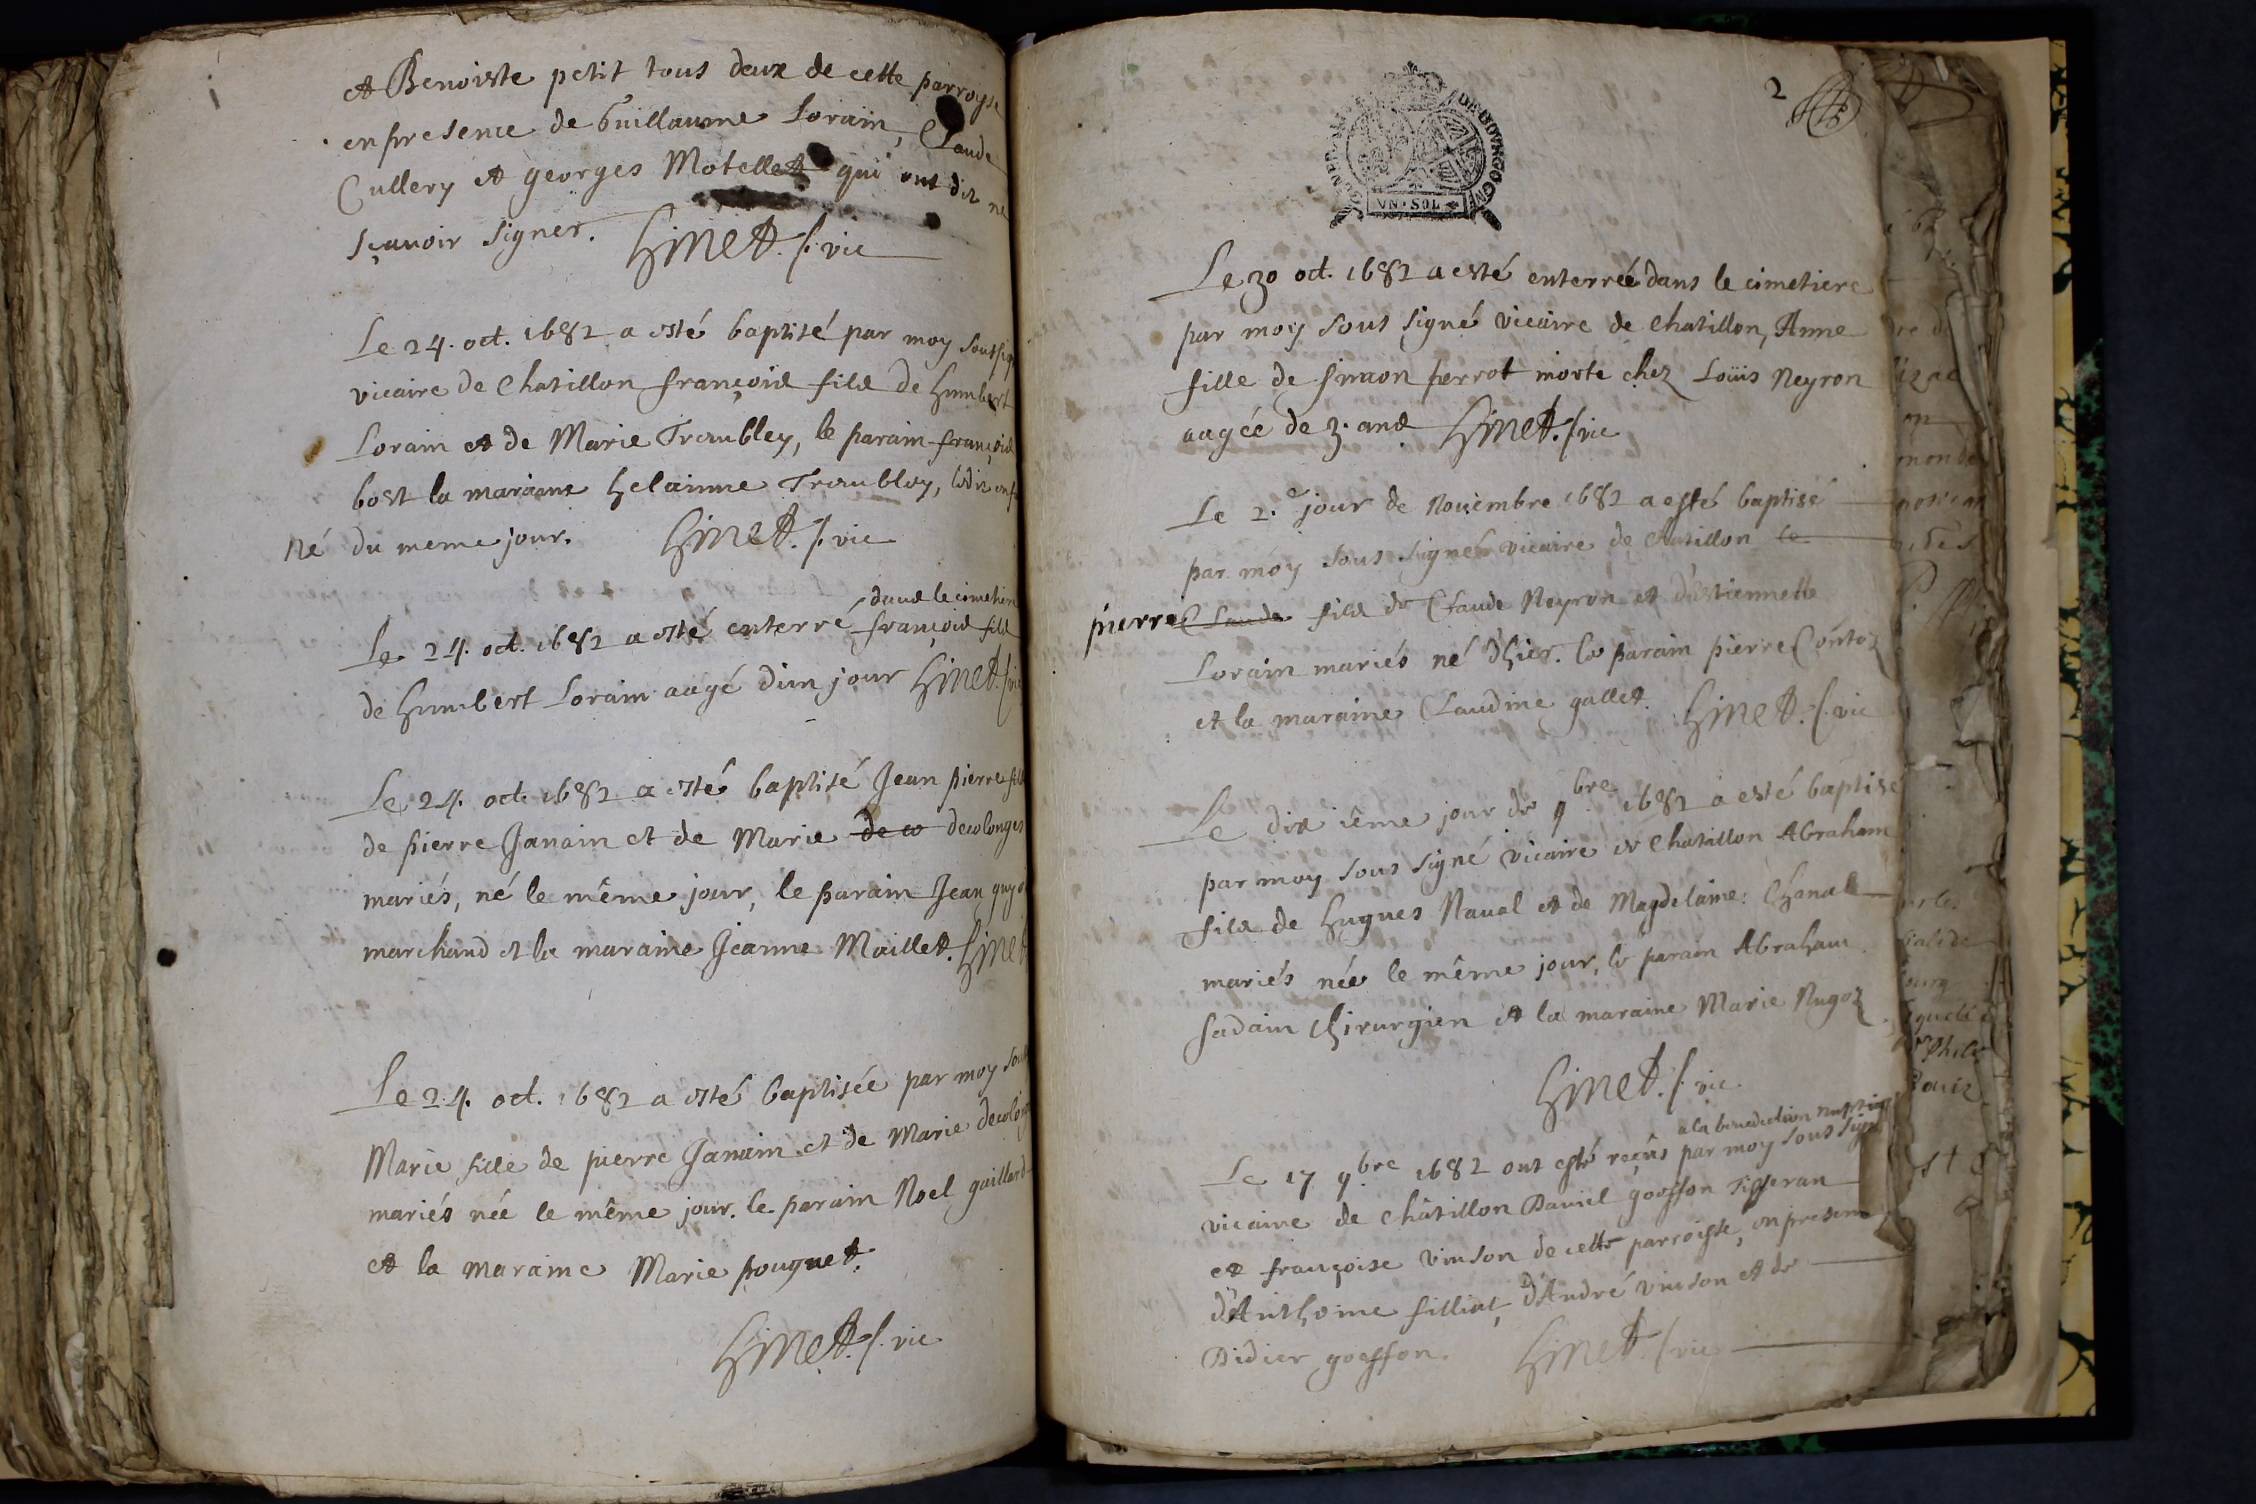 et Benoiste petit tous deux de cette parroysse
en presence de Guillaume Lorain, Claude
Cullery et georges Motellet qui ont dit ne
sçauoir signer. Hinet. vic
Le 24. oct. 1682 a esté baptisé par moy soussig
vicaire de Chatillon françois fils de Humbert
Lorain et de Marie Troubley, le parain françois
bost la maraine helainne Troubley, ledit enf
né du meme jour. Hinet. vic
dans le cimetiere
Le 24. oct. 1682 a esté enterré françois fils
de Humbert Lorain aagé dun jour Hinet. vic
Le 24. oct. 1682 a esté baptisé Jean pierre fils
de pierre Janain et de Marie de co decolonges
mariés, né le même jour, le parain Jean guyo
marchand et la maraine Jeanne Maillet. Hinet
Le 24. oct. 1682 a esté baptisée par moy sous
Marie fille de pierre Janain et de Marie decolong
mariés née le même jour. le parain Noel gaillard
et la maraine Marie pouguet.
Hinet. vic
2
VN·SOL
Le 30 oct. 1682 a esté enterrée dans le cimetiere
par moy sous signé vicaire de Chatillon, Anne
fille de simon perrot morte chez Loüis Neyron
aagée de 3. ans Hinet. vic
Le 2.e jour de Nouembre 1682 a esté baptisé
par moy sous signé vicaire de Chatillon le
pierre Claude fils de Claude Neyron et d'Estiennette
Lorain mariés né d'hier. le parain pierre Contoz
et la maraine Claudine gallet. Hinet. vic
Le dix iême jour de 9bre 1682 a esté baptisé
par moy sous signé vicaire de Chatillon Abraham
fils de Hugues Naual et de Magdelaine Chanal
mariés née le même jour, le parain Abraham
sadain chirurgien et la maraine Marie Nugoz
Hinet. vic
a la benediction nuptia
Le 17 9bre 1682 ont esté reçus par moy sous sign
vicaire de châtillon Daniel goesson Tisseran
et françoise vinson de cette parroisse, en presence
d'Anthoine filliat, d'André vinson et de
Didier goesson. Hinet. vic